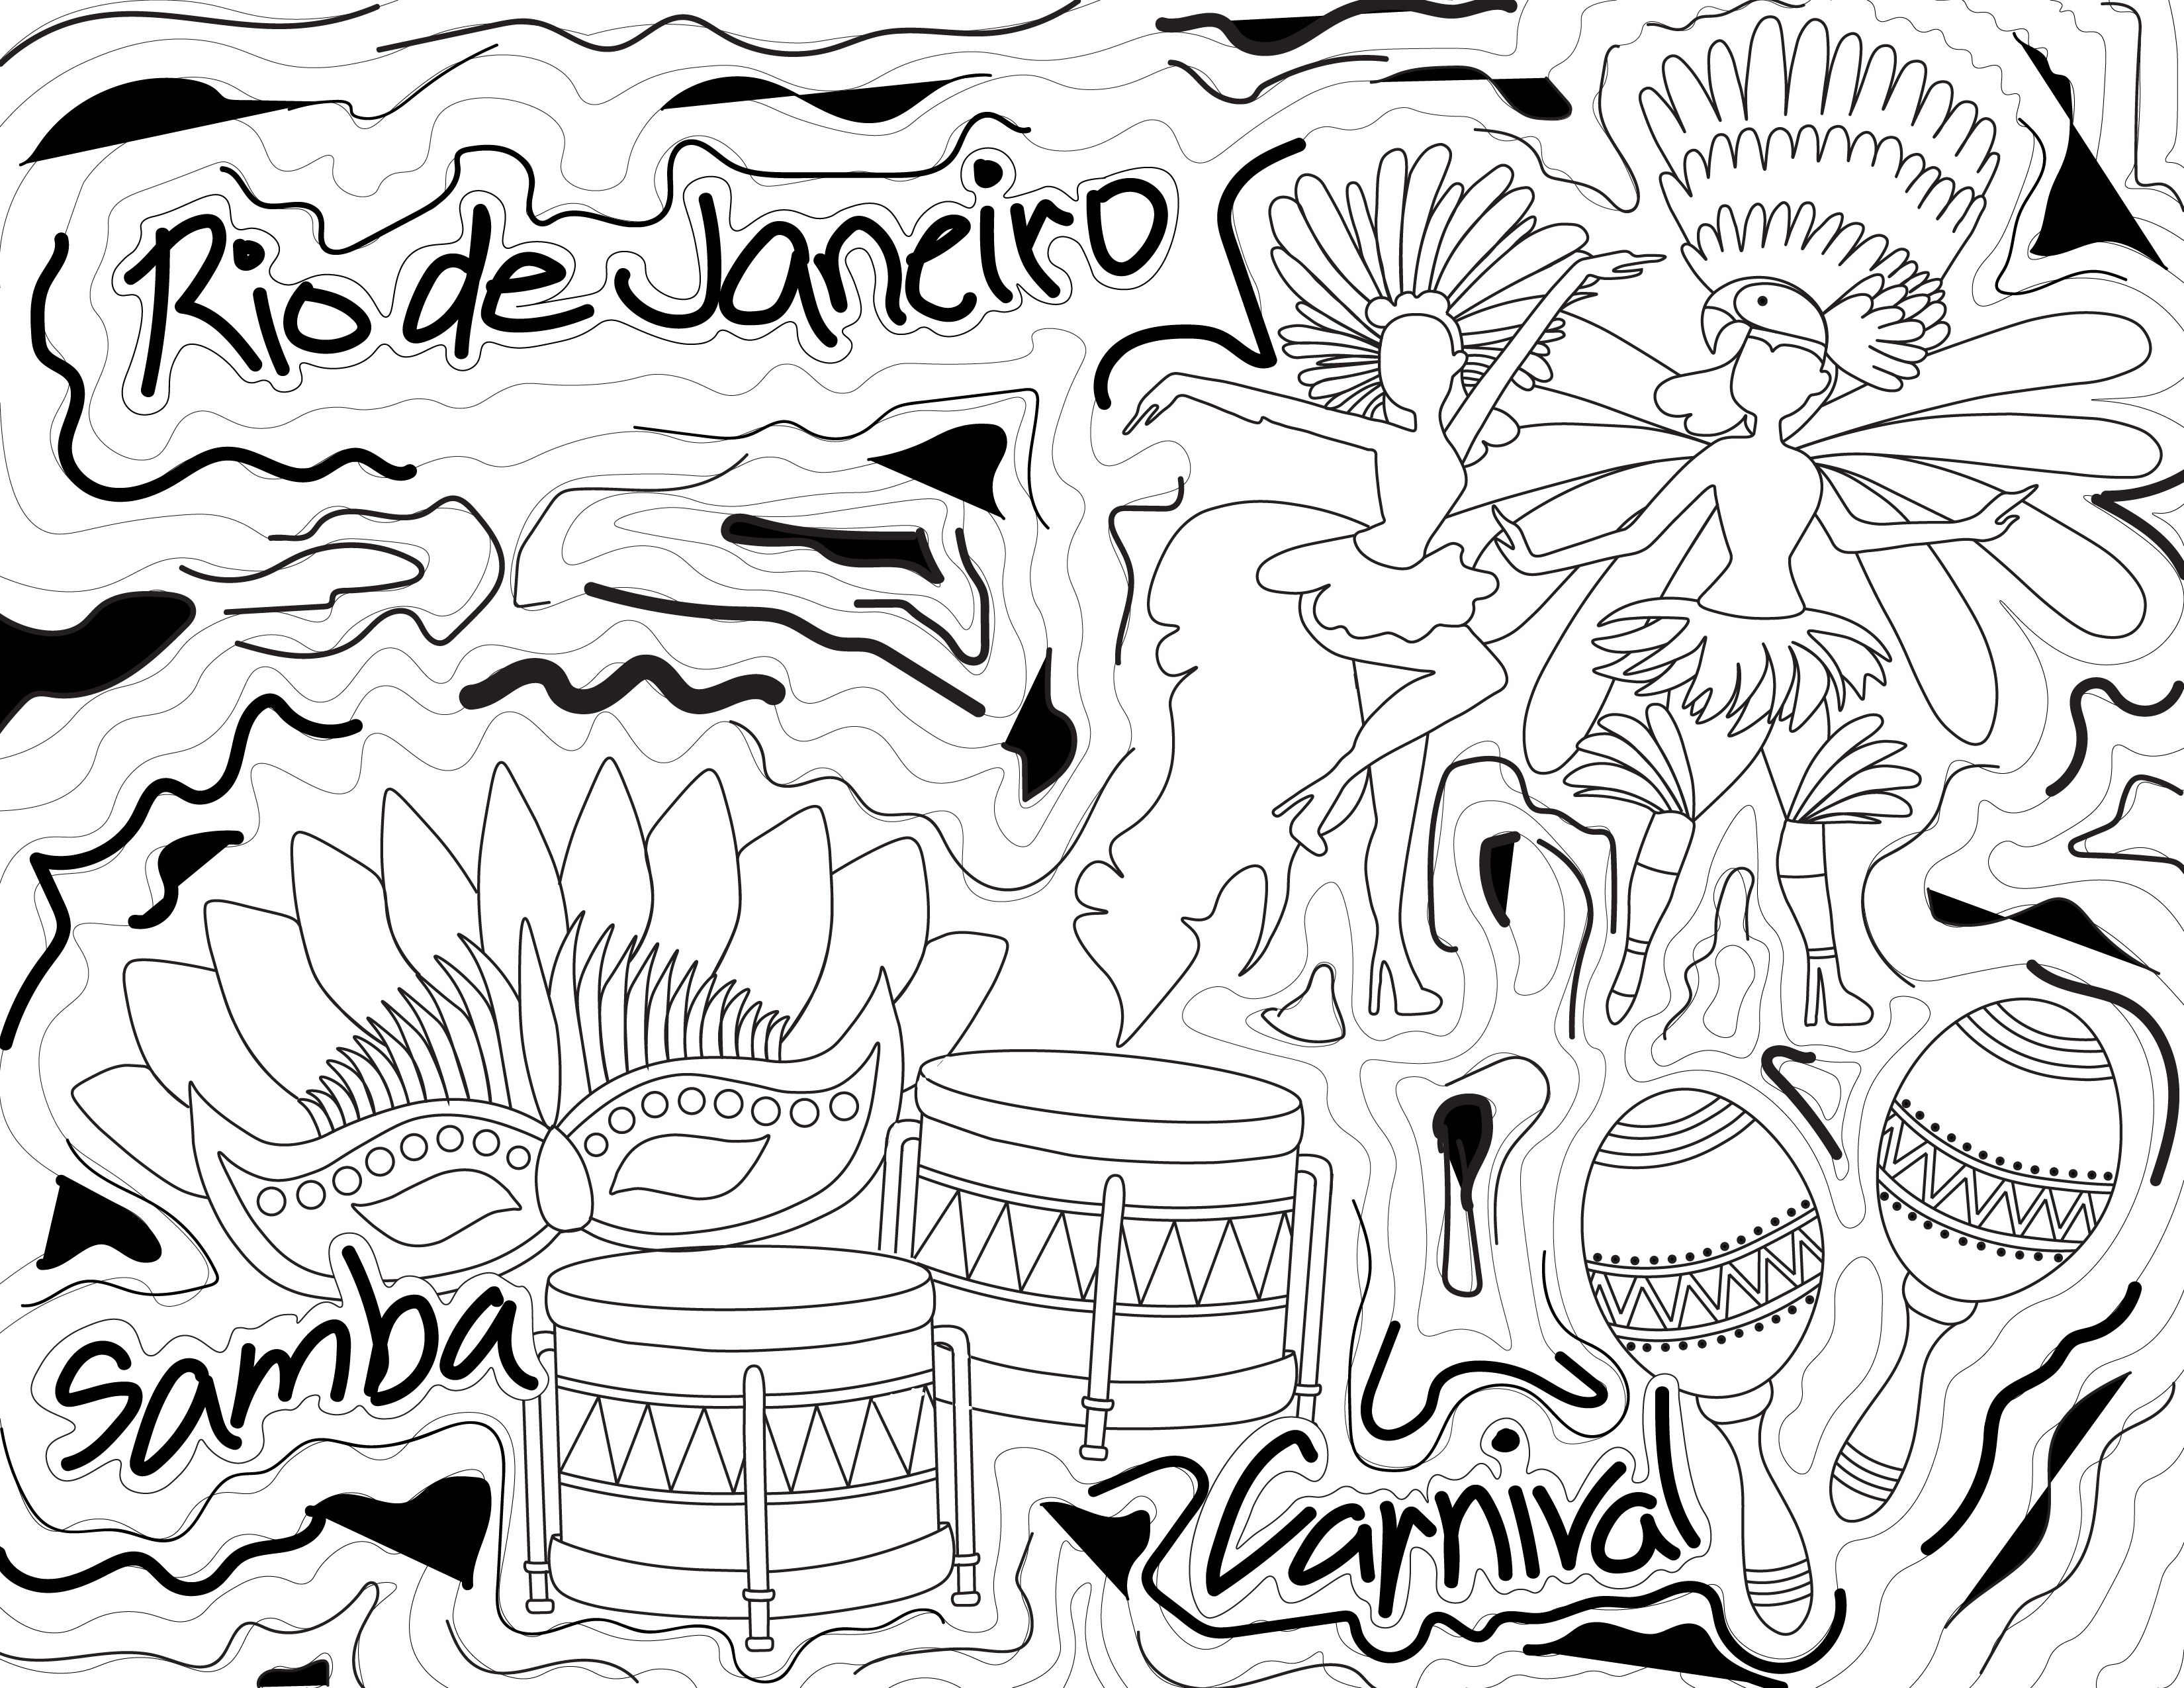 Rio de Janeiro
Samba
Carnival